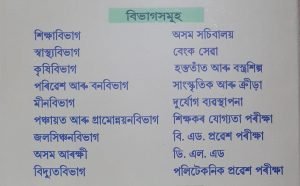 বিভাগসমূহ
শিক্ষাবিভাগ
স্বাস্থ্যবিভাগ
কৃষিবিভাগ
পৰিৱেশ আৰু বনবিভাগ
মীনবিভাগ
পঞ্চায়ত আৰু গ্ৰামোন্নয়নবিভাগ
জলসিঞ্চনবিভাগ
অসম আৰক্ষী
বিদ্যুতবিভাগ
অসম সচিবালয়
বেংক সেৱা
হস্ততাঁত আৰু বস্ত্ৰশিল্প
সাংস্কৃতিক আৰু ক্ৰীড়া
দুৰ্যোগ ব্যৱস্থাপনা
শিক্ষকৰ যোগ্যতা পৰীক্ষা
বি. এড. প্ৰৱেশ পৰীক্ষা
ডি. এল. এড
পলিটেকনিক প্ৰৱেশ পৰীক্ষা